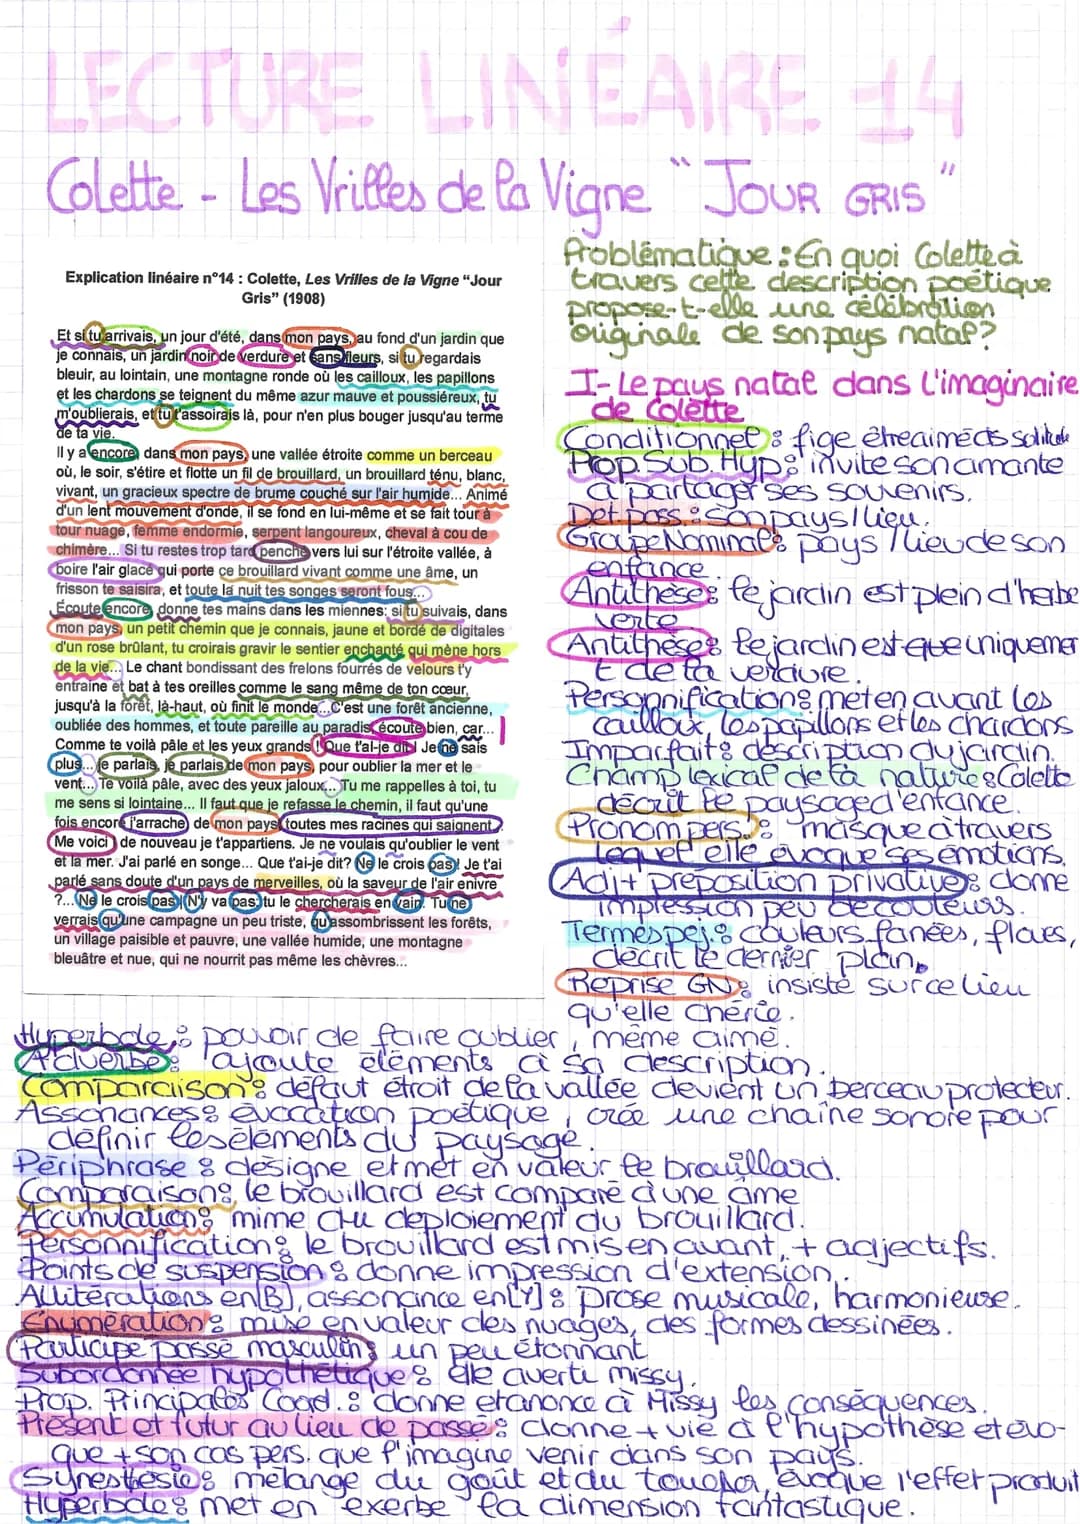 LECTURE LINÉAIRE 14
Colette - Les Vrilles de la Vigne "JOUR GRIS"
Explication linéaire n°14 : Colette, Les Vrilles de la Vigne "Jour
Gris" (1908)
Et si tu arrivais, un jour d'été, dans mon pays, au fond d'un jardin que
je connais, un jardin noir de verdure et sans fleurs, si tu regardais
bleuir, au lointain, une montagne ronde où les cailloux, les papillons
et les chardons se teignent du même azur mauve et poussiéreux, tu
m'oublierais, et tu t'assoirais là, pour n'en plus bouger jusqu'au terme
de ta vie.
Il y a encore, dans mon pays, une vallée étroite comme un berceau
où, le soir, s'étire et flotte un fil de brouillard, un brouillard ténu, blanc,
vivant, un gracieux spectre de brume couché sur l'air humide... Animé
d'un lent mouvement d'onde, il se fond en lui-même et se fait tour à
tour nuage, femme endormie, serpent langoureux, cheval à cou de
chimère... Si tu restes trop tard penché vers lui sur l'étroite vallée, à
boire l'air glacé qui porte ce brouillard vivant comme une âme, un
frisson te saisira, et toute la nuit tes songes seront fous...
Écoute encore, donne tes mains dans les miennes: si tu suivais, dans
mon pays, un petit chemin que je connais, jaune et bordé de digitales
d'un rose brûlant, tu croirais gravir le sentier enchanté qui mène hors
de la vie... Le chant bondissant des frelons fourrés de velours t'y
entraîne et bat à tes oreilles comme le sang même de ton cœur,
jusqu'à la forêt, là-haut, où finit le monde... C'est une forêt ancienne,
oubliée des hommes, et toute pareille au paradis, écoute bien, car...
Comme te voilà pâle et les yeux grands ! Que t'ai-je dit ! Je ne sais
plus... je parlais, je parlais de mon pays, pour oublier la mer et le
vent... Te voilà pâle, avec des yeux jaloux... Tu me rappelles à toi, tu
me sens si lointaine... Il faut que je refasse le chemin, il faut qu'une
fois encore j'arrache de mon pays toutes mes racines qui saignent
Me voici ! de nouveau je t'appartiens. Je ne voulais qu'oublier le vent
et la mer. J'ai parlé en songe... Que t'ai-je dit? Ne le crois pas! Je t'ai
parlé sans doute d'un pays de merveilles, où la saveur de l'air enivre
?... Ne le crois pas! N'y va pas: tu le chercherais en vain. Tu ne
verrais qu'une campagne un peu triste, qu'assombrissent les forêts,
un village paisible et pauvre, une vallée humide, une montagne
bleuâtre et nue, qui ne nourrit pas même les chèvres...
Problématique : En quoi Colette à
travers cette description poétique
propose-t-elle une célébration
originale de son pays natal ?
I- Le pays natal dans l'imaginaire
de Colette
Conditionnel : fige être aimé ds solitude
Prop. Sub. Hyp : invite son amante
à partager ses souvenirs.
Det. poss : son pays / lieu.
Groupe Nominal : pays / lieu de son
enfance.
Antithèse : le jardin est plein d'herbe
verte
Antithèse : le jardin est que uniquemen
t de la verdure.
Personnifications met en avant les
cailloux, les papillons et les chardons
Imparfait : description du jardin.
Champ lexical de la nature : Colette
décrit le paysage d'enfance.
Pronom pers. : masque à travers
lequel elle évoque ses émotions.
Adj + préposition privative : donne
impression peu de couleurs.
Termes pej. : couleurs fanées, floues,
décrit le dernier plan.
Reprise GN : insiste sur ce lieu
qu'elle chérie.
Hyperbole : pouvoir de faire oublier, même aimé.
Adverbe : ajoute éléments à sa description.
Comparaison : défaut étroit de la vallée devient un berceau protecteur.
Assonances : évocation poétique, crée une chaîne sonore pour
définir les éléments du paysage.
Périphrase : désigne et met en valeur le brouillard.
Comparaison : le brouillard est comparé à une âme
Accumulation : mime du déploiement du brouillard.
Personnification : le brouillard est mis en avant, + adjectifs.
Points de suspension : donne impression d'extension.
Allitérations en [B], assonance en [Y] : prose musicale, harmonieuse.
Énumération : mise en valeur des nuages, des formes dessinées.
Participe passé masculin : un peu étonnant
Subordonnée hypothétique : elle averti missy.
Prop. Principales Coord. : donne et anonce à Missy les conséquences.
Présent et futur au lieu de passé : donne + vie à l'hypothèse et évo-
que + son cas pers. que l'imagine venir dans son pays.
Synesthésie : mélange du goût et du toucher, évoque l'effet produit
Hyperbole : met en exerbe la dimension fantastique.